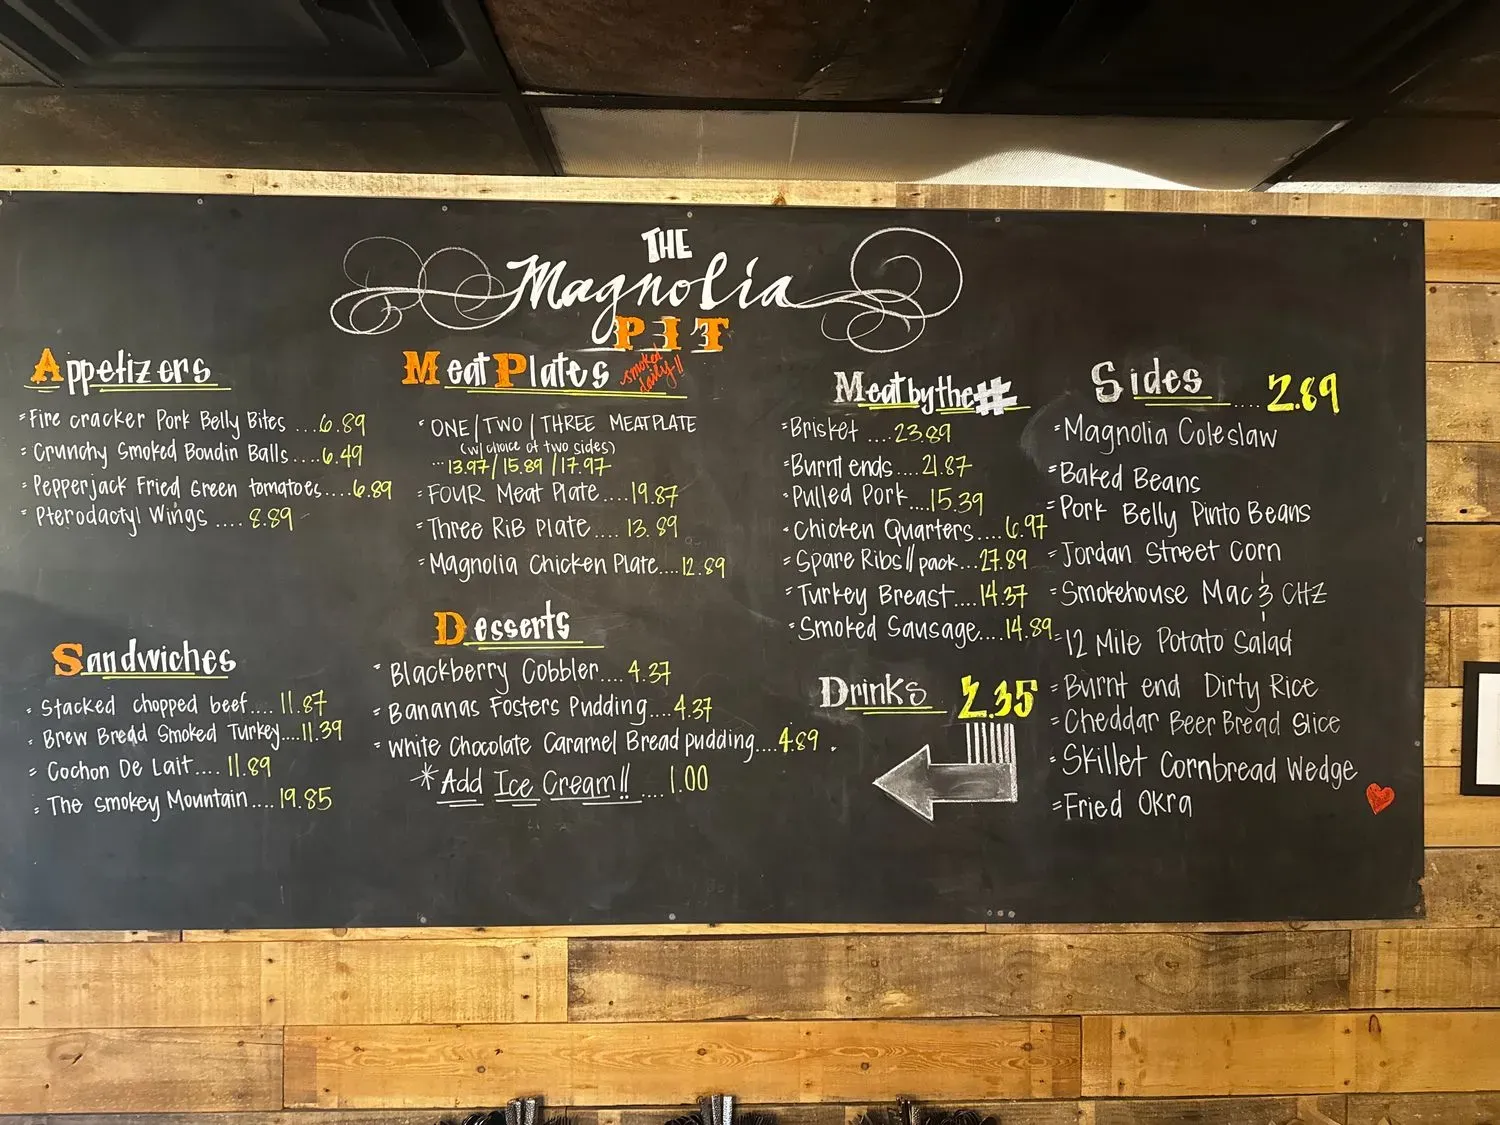 THE
Magnolia
PIT
Appetizers
Fire cracker Pork Belly Bites ...6.89
Crunchy Smoked Boudin Balls....6.49
Pepperjack Fried Green tomatoes....6.89
Pterodactyl Wings .... 8.89
Sandwiches
Stacked chopped beef.... 11.87
Brew Bread Smoked Turkey....11.39
Cochon De Lait.... 11.89
The Smokey Mountain.... 19.85
Meat Plates smoked daily!!
ONE / TWO / THREE MEAT PLATE
(w/ choice of two sides)
...13.97 / 15.89 / 17.97
FOUR Meat Plate....19.87
Three Rib Plate .... 13.89
Magnolia Chicken Plate....12.89
Desserts
Blackberry Cobbler.... 4.37
Bananas Fosters Pudding....4.37
White Chocolate Caramel Bread pudding....4.89 .
*Add Ice Cream!! .... 1.00
Meat by the #
Brisket ....23.89
Burnt ends....21.87
Pulled Pork....15.39
Chicken Quarters....6.97
Spare Ribs // pack...27.89
Turkey Breast....14.37
Smoked Sausage....14.89
Drinks 2.35
Sides .... 2.89
Magnolia Coleslaw
Baked Beans
Pork Belly Pinto Beans
Jordan Street Corn
Smokehouse Mac & CHZ
12 Mile Potato Salad
Burnt end Dirty Rice
Cheddar Beer Bread Slice
Skillet Cornbread Wedge
Fried Okra